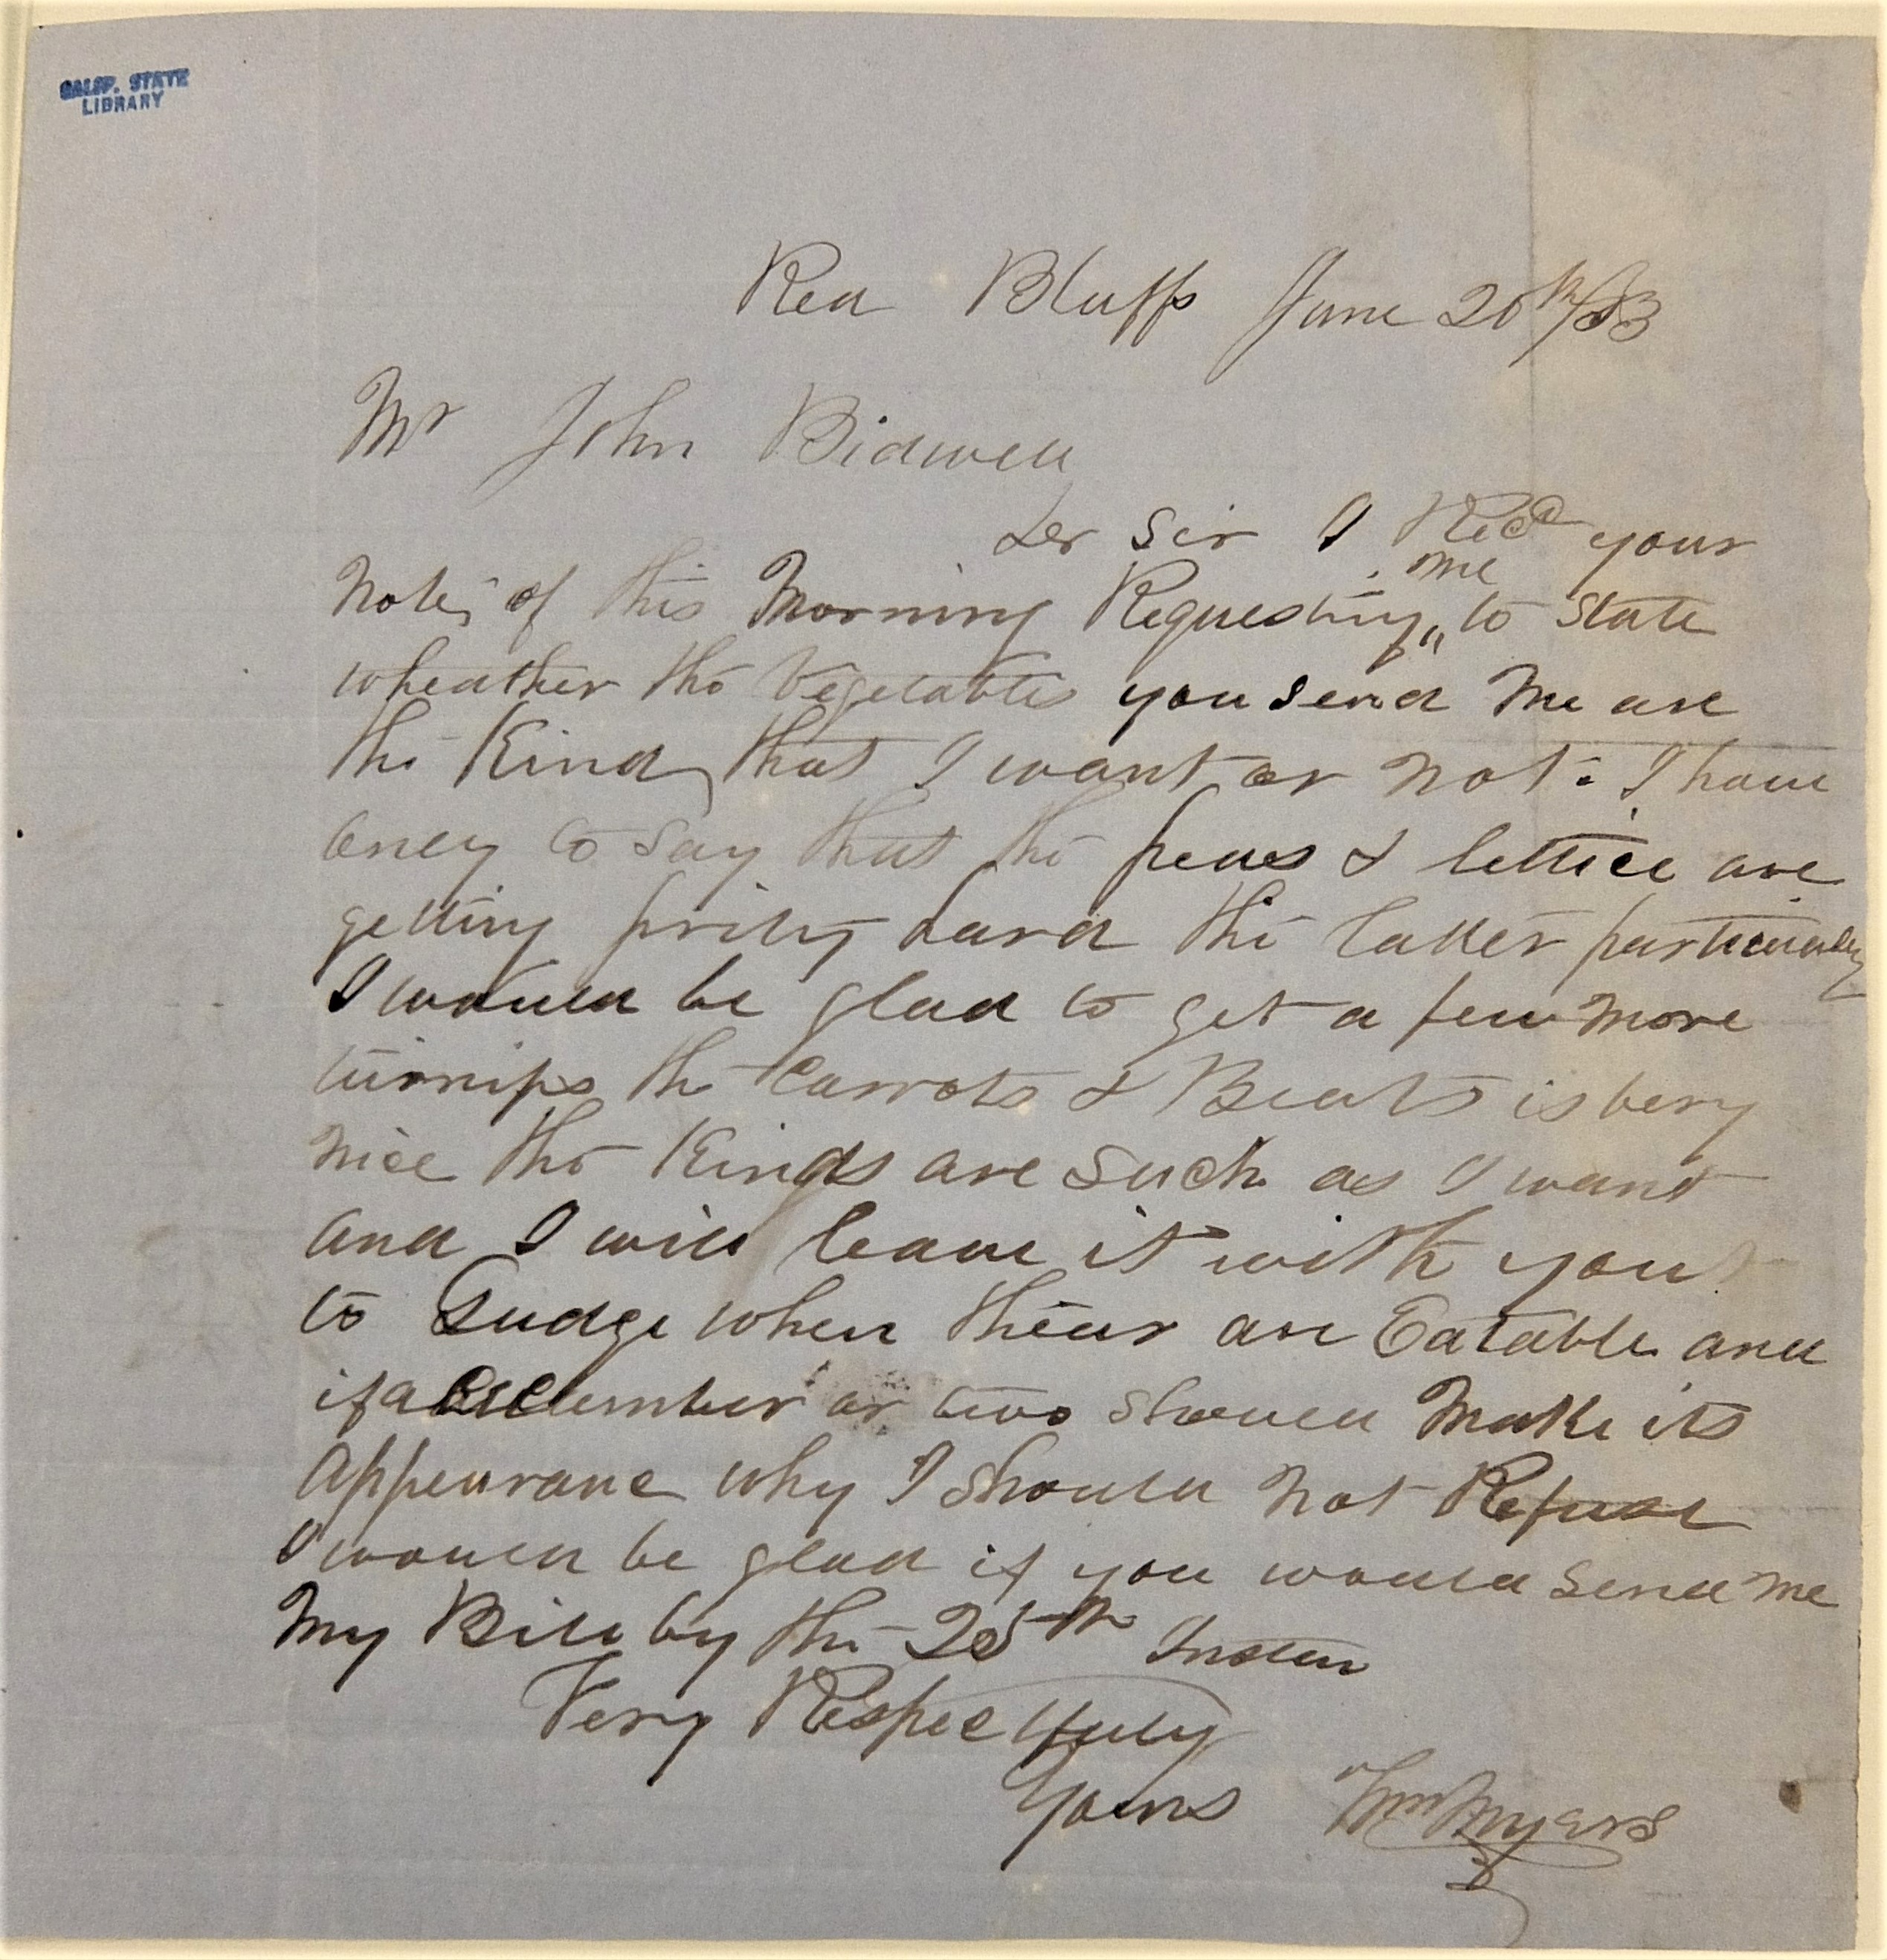 CALIF. STATE
LIBRARY
Red Bluffs June 20th/53
Mr John Bidwell
Der Sir I Recd your
Note, of this Morning Requesting me to State
wheather the Vegetables you send me are
the Kind that I want or not = I have
oney to say that the peas & lettice are
getting prity hard the latter particularly
I would be glad to get a few more
turnips the Carrots & Beats is very
nice the Kinds are such as I want
and I will leave it with you
to Judge when thear are Eatable and
if a Cucumber or two should make its
Appearane why I should not Refuse
I would be glad if you would send me
My Bill by the 25th
Very Respectfuly
Yours Wm Myers